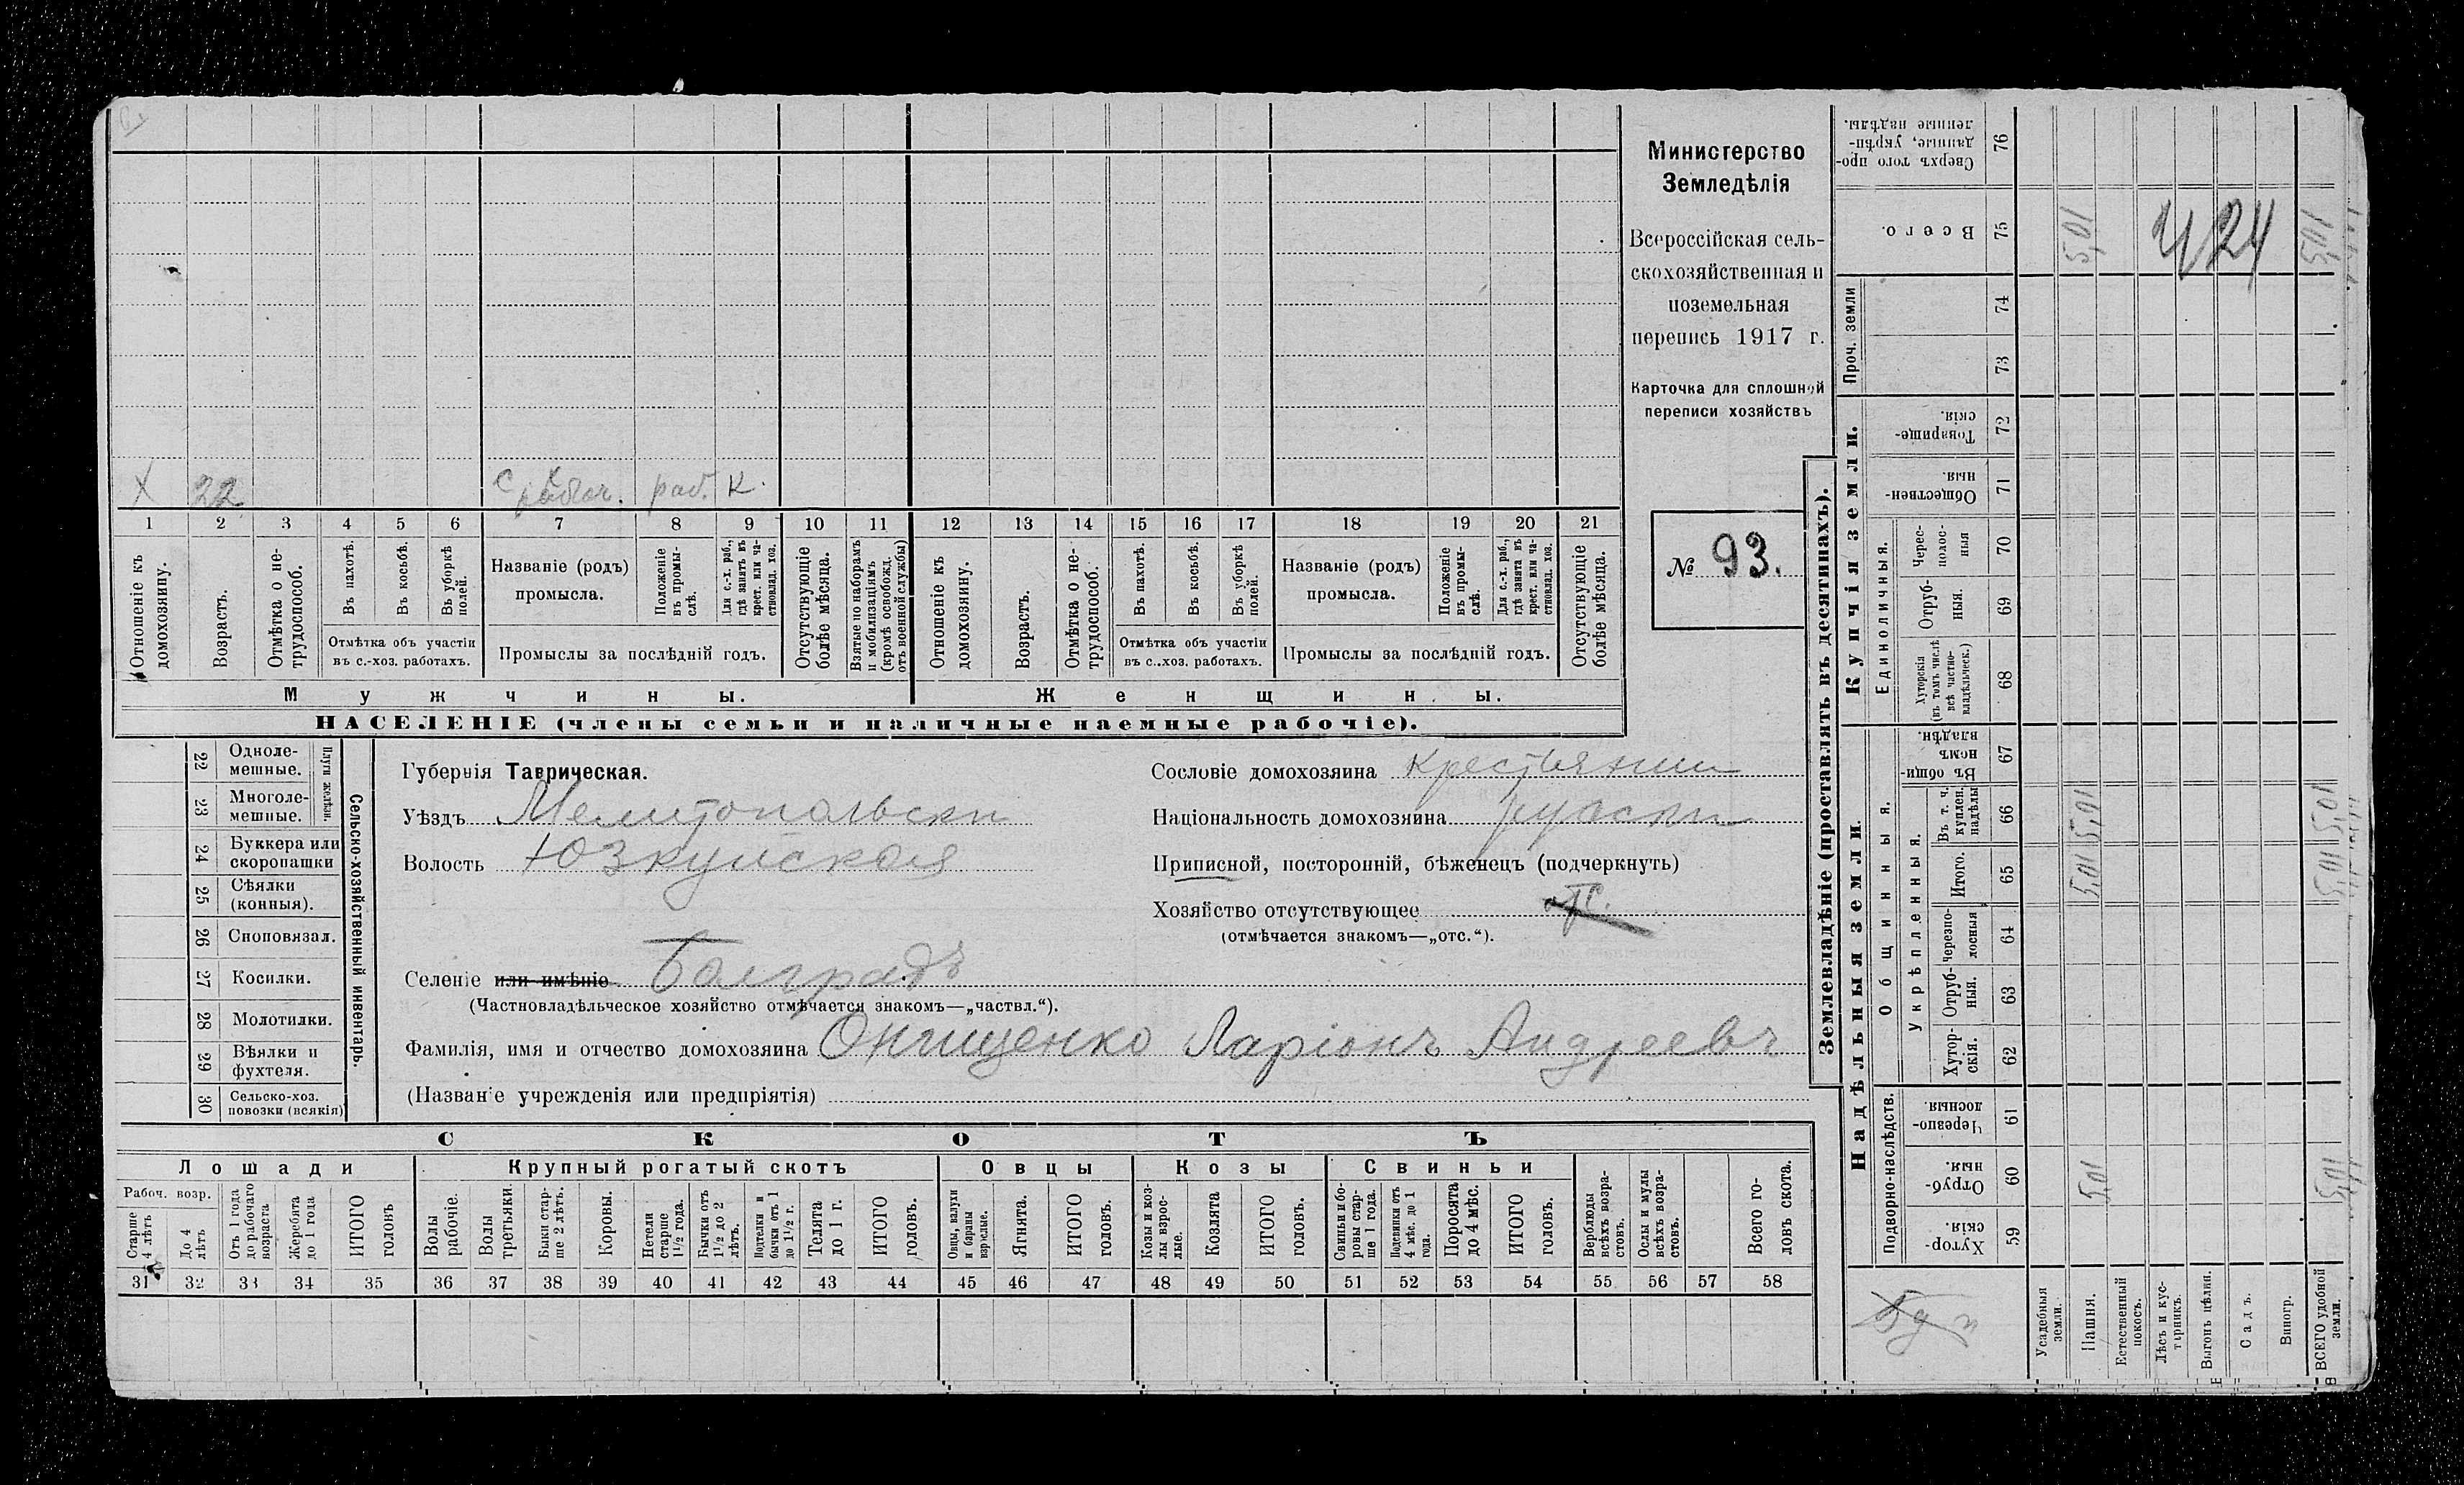 Министерство
Земледѣлія
Всероссійская сель-
скохозяйственная и
поземельная
перепись 1917 г.
Карточка для сплошной
переписи хозяйствъ
№ 93.
X 22 с х рабоч. раб. К.
1 2 3 4 5 6 7 8 9 10 11 12 13 14 15 16 17 18 19 20 21
Отношеніе къ домохозяину.
Возрастъ.
Отмѣтка о не-трудоспособ.
Въ пахотѣ.
Въ косьбѣ.
Въ уборкѣ полей.
Отмѣтка объ участіи въ с.-хоз. работахъ.
Названіе (родъ) промысла.
Положеніе въ промы-слѣ.
Для с.-х. раб., гдѣ занятъ въ крест. или ча-стновлад. хоз.
Промыслы за послѣдній годъ.
Отсутствующіе болѣе мѣсяца.
Взятые по наборамъ и мобилизаціямъ (кромѣ освобожд. отъ военной службы)
Отношеніе къ домохозяину.
Возрастъ.
Отмѣтка о не-трудоспособ.
Въ пахотѣ.
Въ косьбѣ.
Въ уборкѣ полей.
Отмѣтка объ участіи въ с..хоз. работахъ.
Названіе (родъ) промысла.
Положеніе въ промы-слѣ.
Для с.-х. раб., гдѣ занята въ крест. или ча-стновлад. хоз.
Промыслы за послѣдній годъ.
Отсутствующіе болѣе мѣсяца.
Мужчины. Женщины.
НАСЕЛЕНІЕ (члены семьи и наличные наемные рабочіе).
Сельско-хозяйственный инвентарь.
Плуги желѣзн.
22 Одноле-мешные.
23 Многоле-мешные.
24 Буккера или скоропашки
25 Сѣялки (конныя).
26 Сноповязал.
27 Косилки.
28 Молотилки.
29 Вѣялки и фухтеля.
30 Сельско-хоз. повозки (всякія)
Губернія Таврическая.
Уѣздъ Мелитопольски
Волость Юзкуйская
Селеніе или имѣніе Болградъ
(Частновладѣльческое хозяйство отмѣчается знакомъ—„частвл.“).
Фамилія, имя и отчество домохозяина Онищенко Ларіонъ Андреевъ
(Названіе учрежденія или предпріятія)
Сословіе домохозяина крестьянин
Національность домохозяина руски
Приписной, посторонній, бѣженецъ (подчеркнуть)
Хозяйство отсутствующее отс.
(отмѣчается знакомъ—„отс.“).
СКОТЪ
Лошади Крупный рогатый скотъ Овцы Козы Свиньи
Рабоч. возр.
Старше 4 лѣтъ
До 4 лѣтъ
Отъ 1 года до рабочаго возраста
Жеребята до 1 года
ИТОГО головъ
Волы рабочіе.
Волы третьяки.
Быки стар-ше 2 лѣтъ.
Коровы.
Нетели старше 1½ года.
Бычки отъ 1½ до 2 лѣтъ.
Подтелки и бычки отъ 1 до 1½ г.
Телята до 1 г.
ИТОГО головъ.
Овцы, валухи и бараны взрослые.
Ягнята.
ИТОГО головъ.
Козы и коз-лы взрос-лые.
Козлята
ИТОГО головъ.
Свиньи и бо-ровы стар-ше 1 года.
Подсвинки отъ 4 мѣс. до 1 года.
Поросята до 4 мѣс.
ИТОГО головъ.
Верблюды всѣхъ возра-стовъ.
Ослы и мулы всѣхъ возра-стовъ.
Всего го-ловъ скота.
31 32 33 34 35 36 37 38 39 40 41 42 43 44 45 46 47 48 49 50 51 52 53 54 55 56 57 58
Землевладѣніе (проставлять въ десятинахъ).
Надѣльныя земли.
Подворно-наслѣдств.
Хутор-скія. 59
Отруб-ныя. 60 5,01 5,01
Черезпо-лосныя. 61
Общинныя.
Укрѣпленныя.
Хутор-скія. 62
Отруб-ныя. 63
Черезпо-лосныя 64
Итого. 65 5,01 5,01
Въ т. ч. куплен. надѣлы 66 5,01 5,01
Въ общи-номъ владѣн. 67
Купчія земли.
Единоличныя.
Хуторскія (въ томъ числѣ всѣ частно-владѣльческ.) 68
Отруб-ныя. 69
Черес-полос-ныя 70
Обществен-ныя 71
Товарище-скія. 72
Проч. земли
73
74
Всего. 75 5,01 424 5,01
Сверхъ того про-данные, укрѣп-ленные надѣлы. 76
Усадебныя земли.
Пашня.
Естественный покосъ.
Лѣсъ и кус-тарникъ.
Выгонъ цѣлин.
Садъ.
Виногр.
ВСЕГО удобной земли.